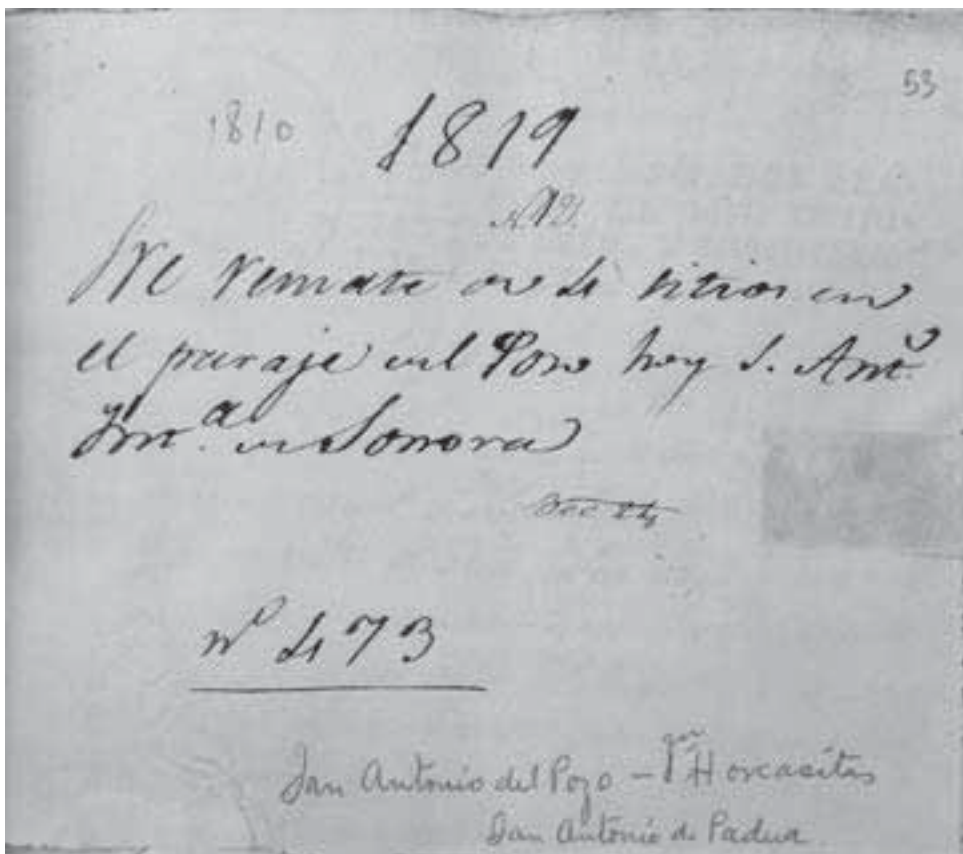 53
1810 1819
Sre remate de 4 sitios en
el paraje del Pozo hoy S. Antº
en Sonora
nº 473
San Antonio del Pozo – Horcasitas
San Antonio de Padua